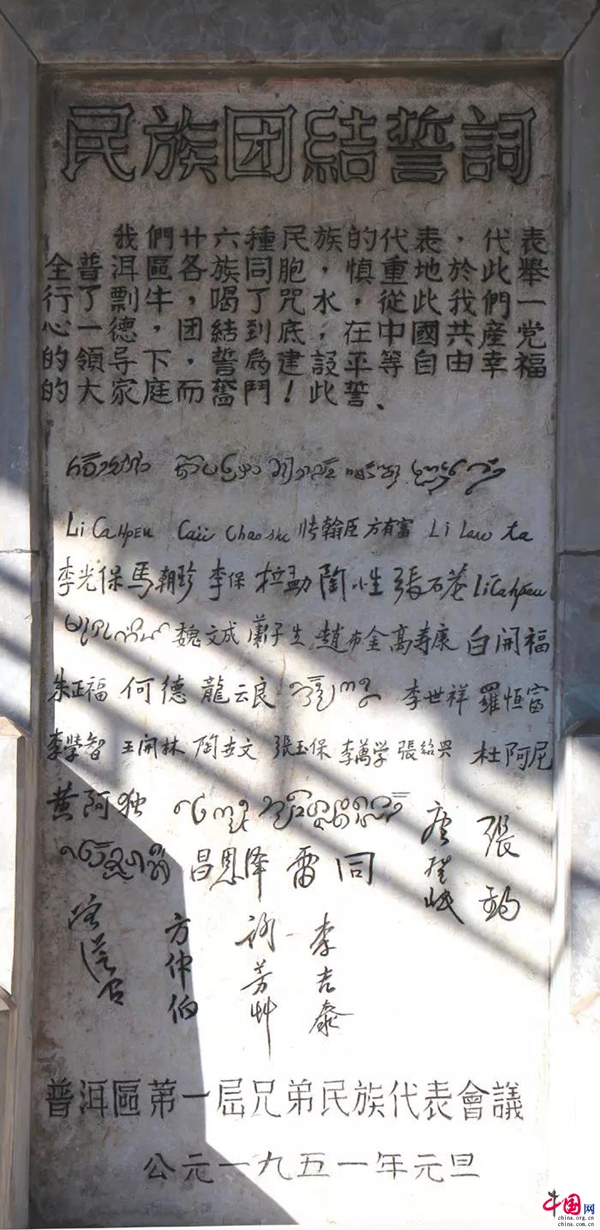 民族团結誓詞
我們廿六種民族的代表，代表
全普洱區各族同胞，慎重地於此舉
行了剽牛，喝了咒水，從此我們一
心一德，团結到底，在中國共產党
的領导下，誓為建設平等自由幸福
的大家庭而奮鬥！此誓、
Li CaHpeu 方有富 Li Law ta
李光保 馬朝珍 李保 拉勐 陶小生 張石菴 Li CaHpeu
魏文成 蕭子生 趙布金 高寿康 白開福
朱正福 何德 龍云良 李世祥 羅恒富
李學智 王開林 陶世文 張玉保 李萬学 張紹兴 杜阿尼
黄阿独 唐登岷 張鈞
昌恩泽 雷同
方仲伯 謝芳草 李吉泰
普洱區第一屆兄弟民族代表會議
公元一九五一年元旦
中国网
china.org.cn
china.com.cn